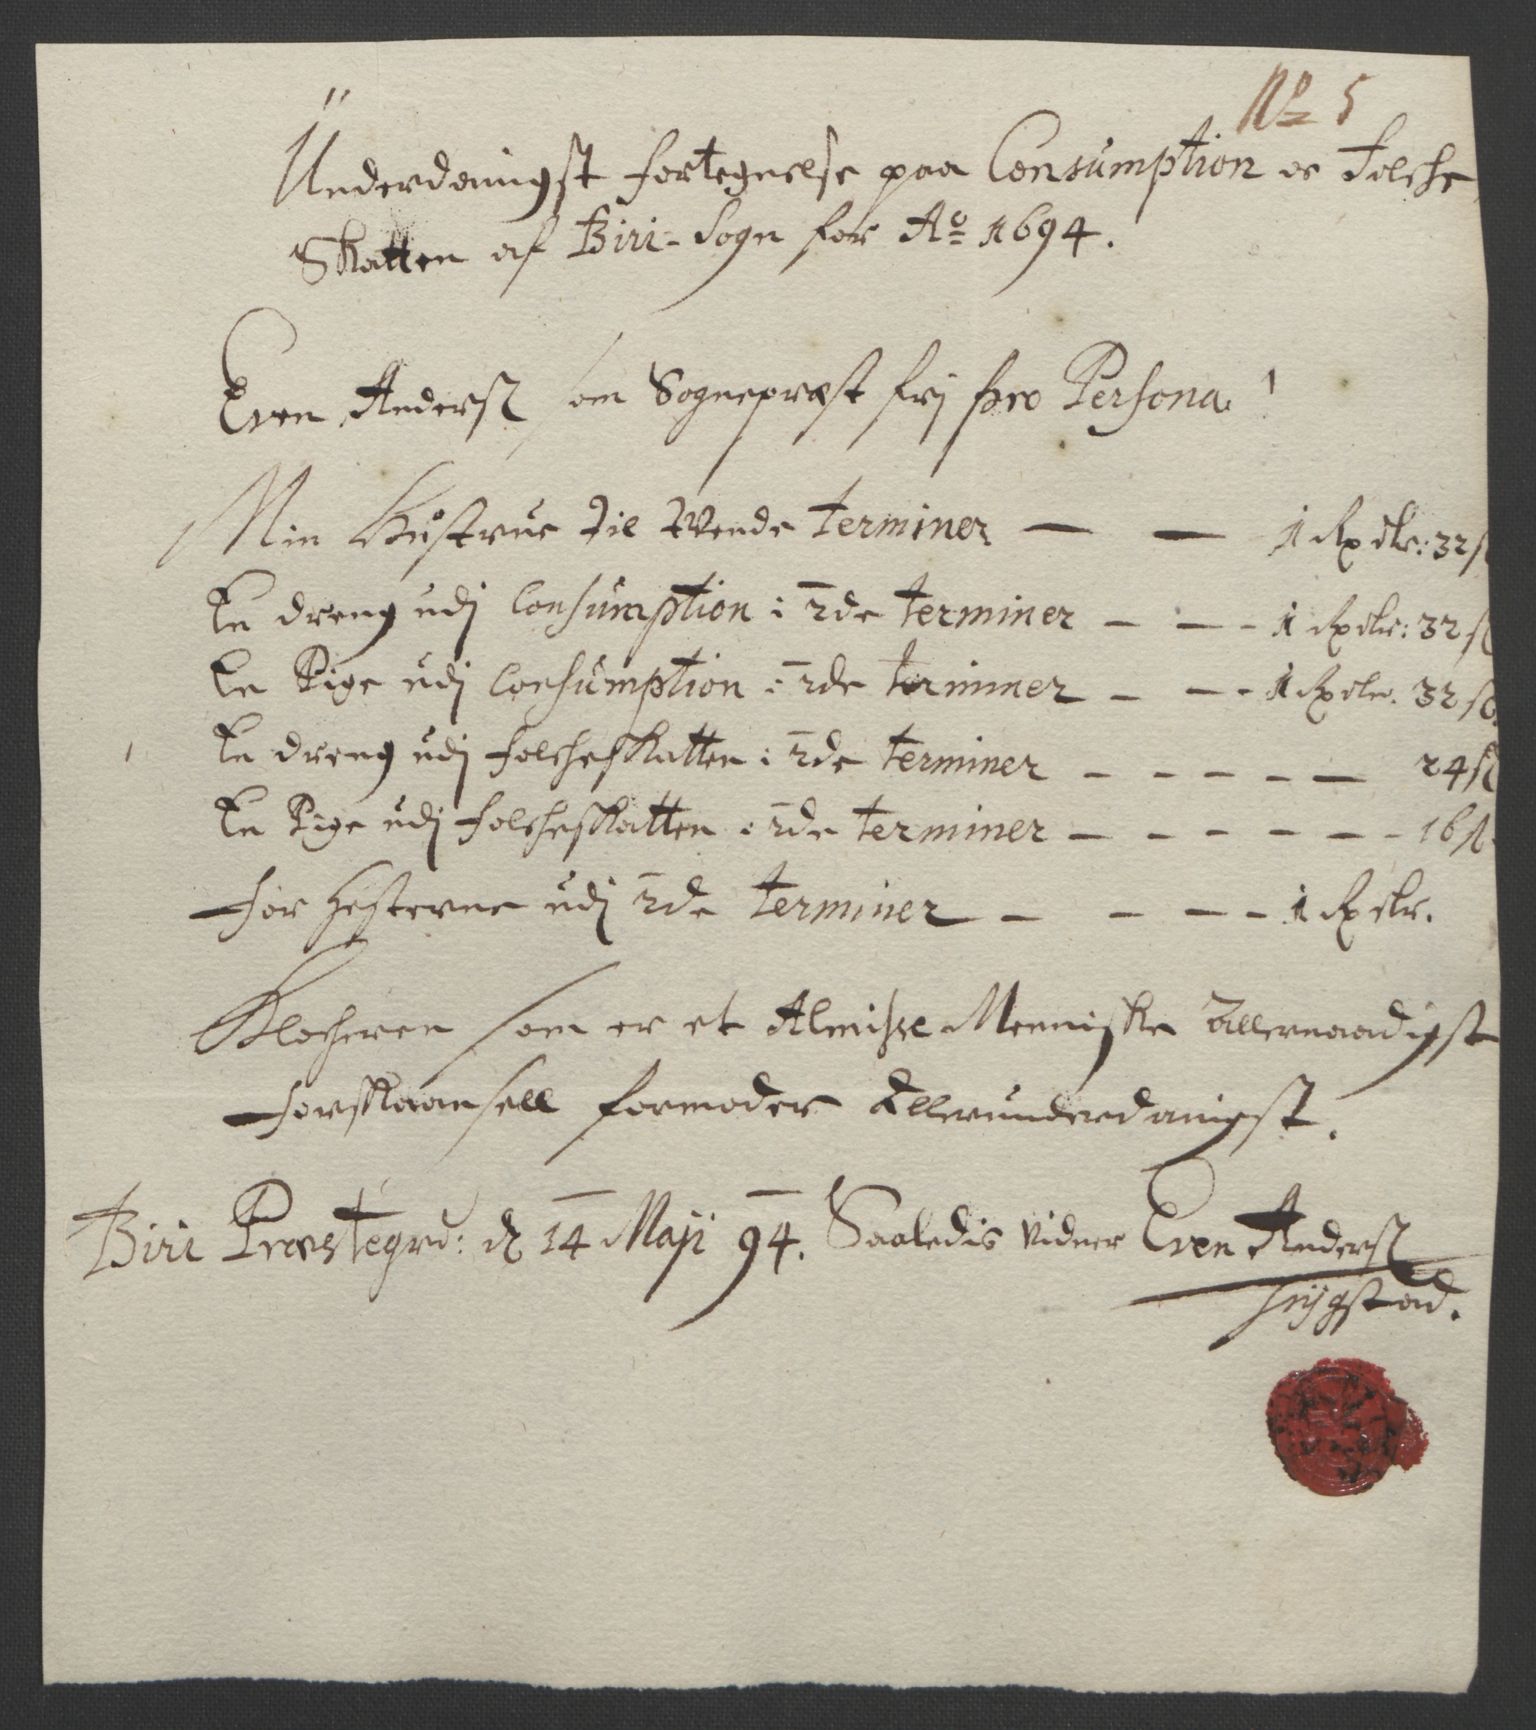 No 5
Underdanigst fortegnelse paa Consumption oc Folche
Skatten af Biri-Sogn for Ao 1694.
Even Anders: som Sognepræst frj pro Persona.
Min Hustrue til tvende terminer — — 1 Rxdlr: 32 s
En dreng udj Consumption i 2de terminer - - - 1 Rxdlr: 32 s
En Pige udj Consumption i 2de terminer - - - 1 Rxdlr. 32 s.
En dreng udj folcheskatten i 2de terminer - - - - - 24 s
En Pige udj folcheskatten i 2de terminer - - - - - - 16 s
For hesterne udj 2de terminer - - - - 1 Rxdlr.
Klocheren som er et Almisse Menniske Allernaadigst
forskaansell formoder Allerunderdanigst.
Biri Præstegrd: d 14 Maji 94. Saaledis vidner Even Anders: